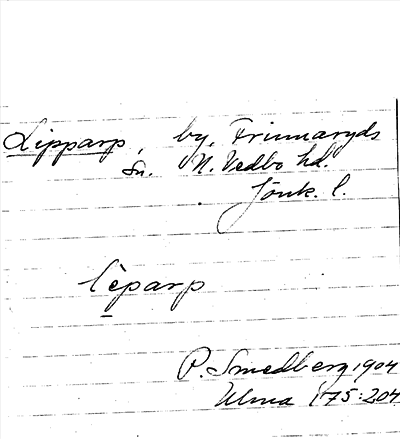 Lipparp, by, Frinnaryds
Sn. N. Vedbo hd.
Jönk. l.
lèparp
P. Smedberg 1904
Ulma 175:204